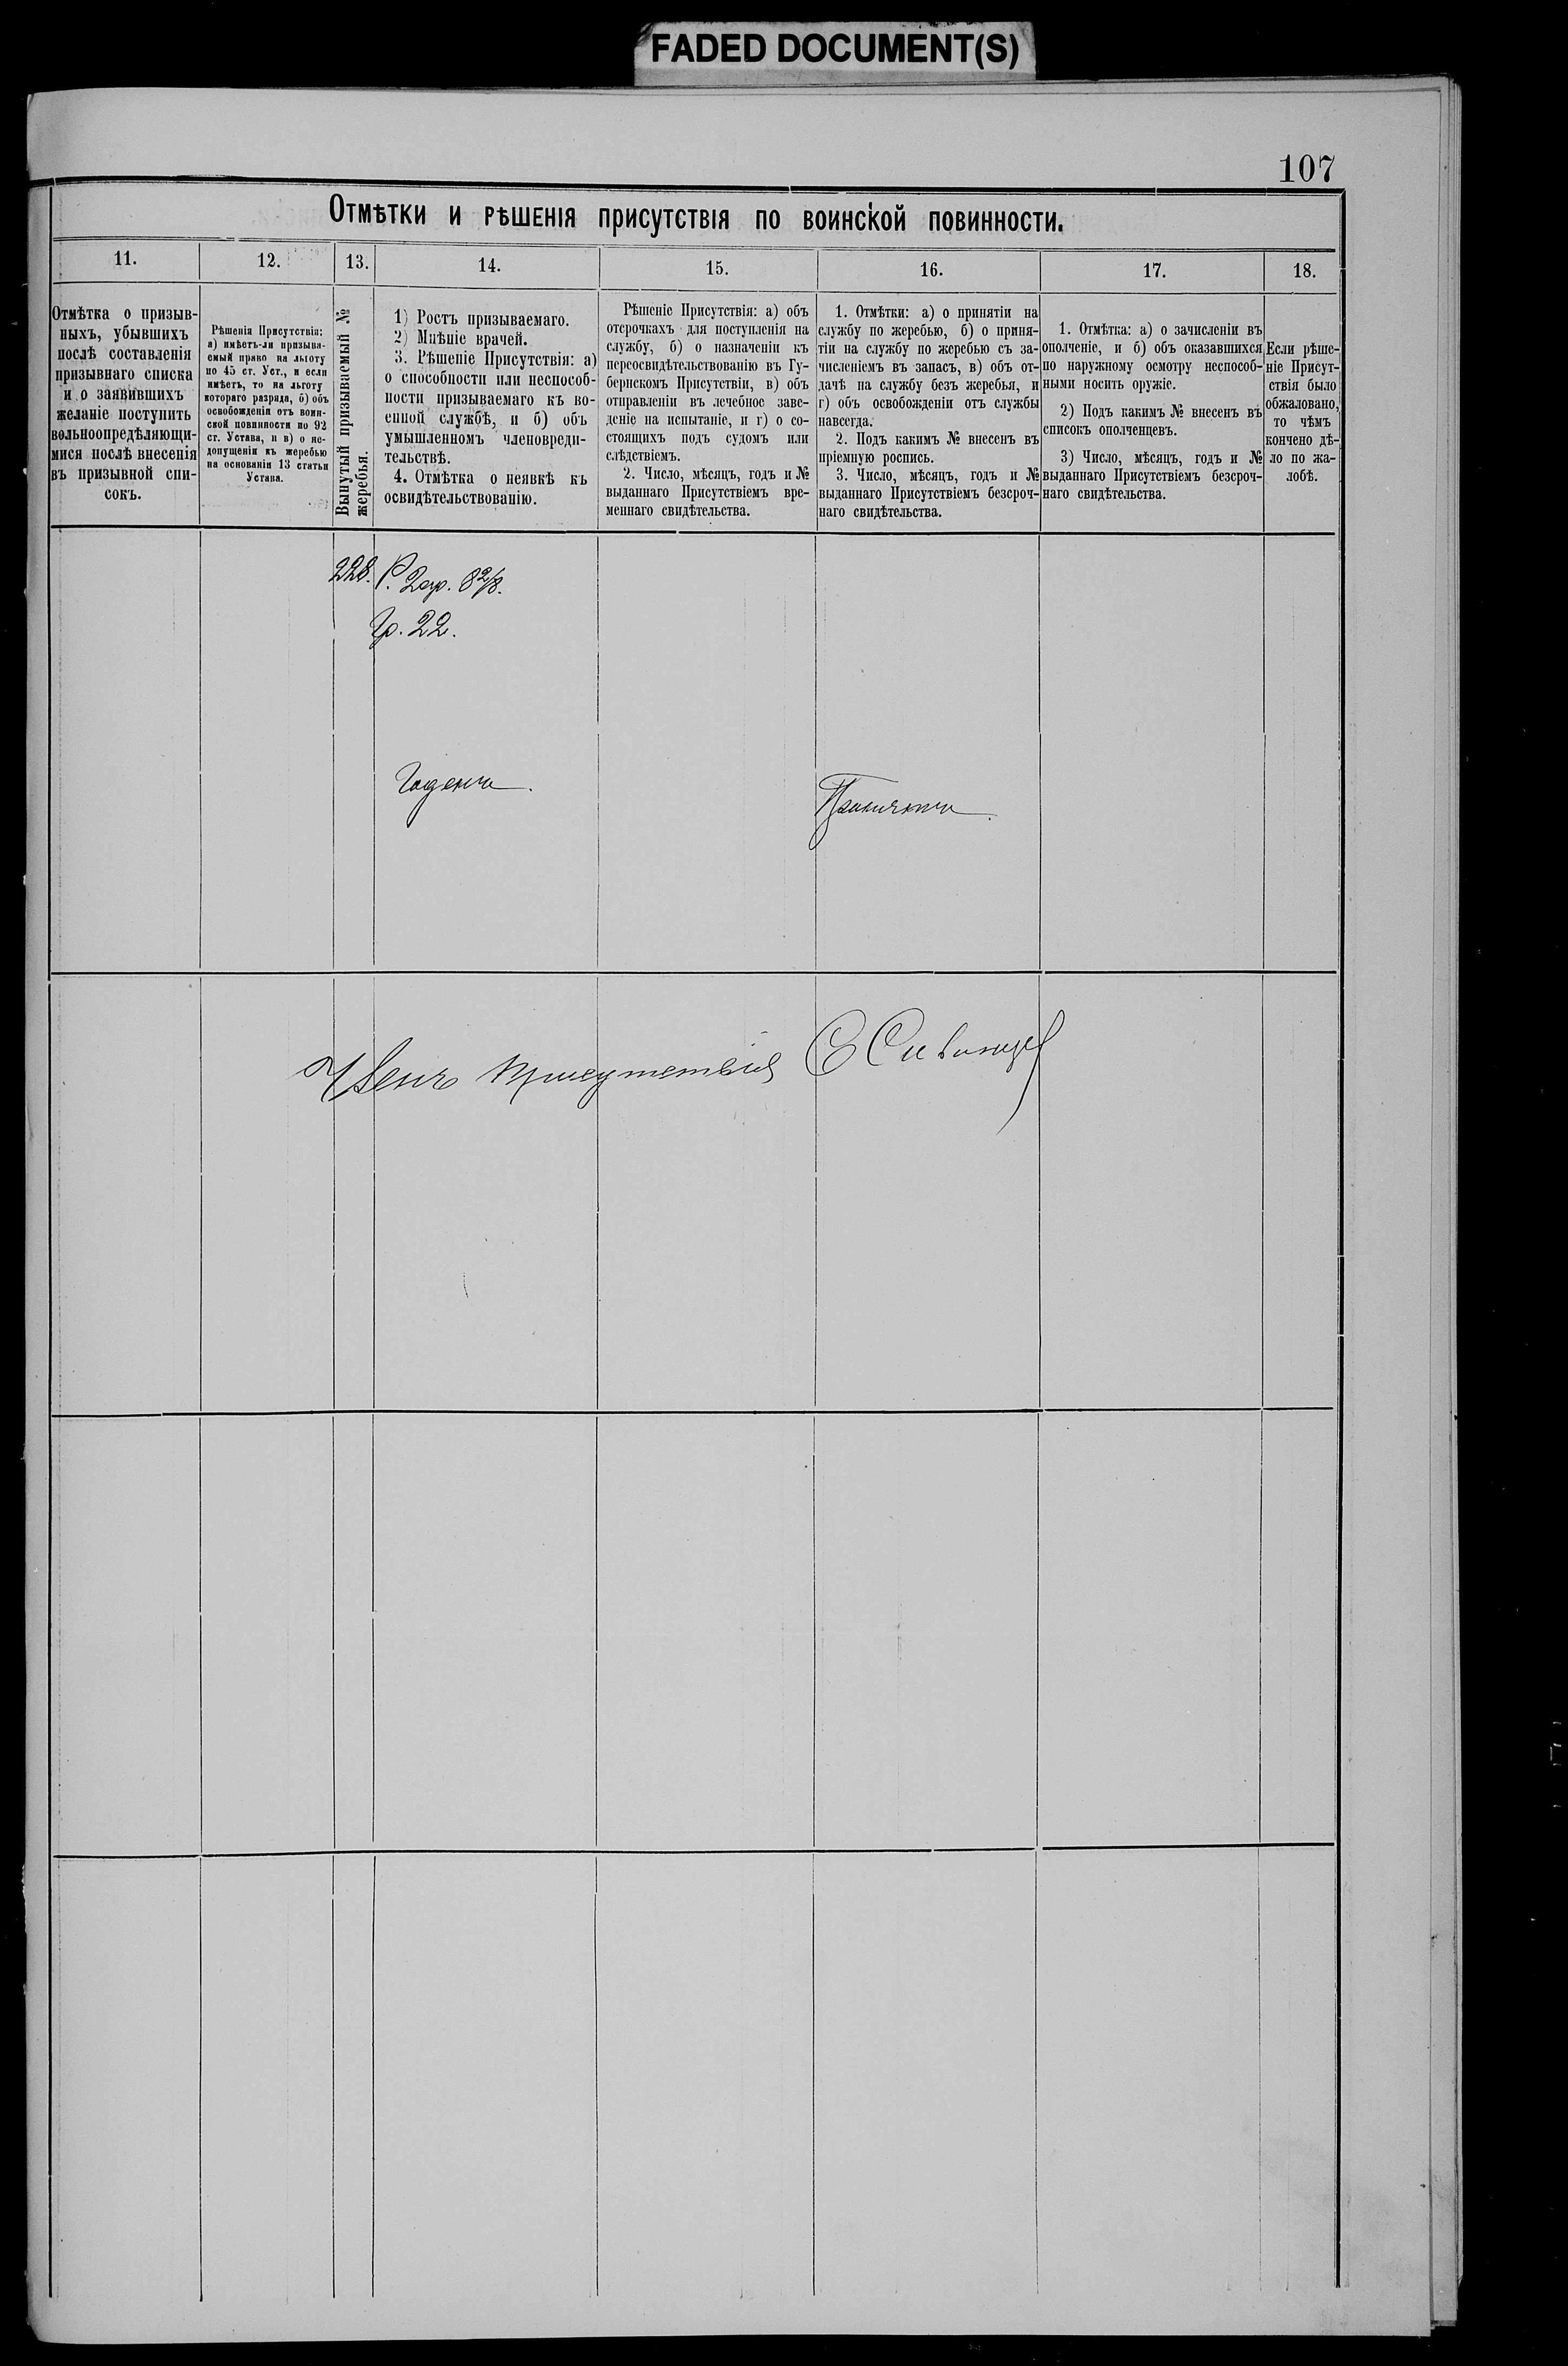 FADED DOCUMENT(S)
107
Отмѣтки и рѣшенія присутствія по воинской повинности.
11.
12.
13.
14.
15.
16.
17.
18.
Отмѣтка о призыв-
ныхъ, убывшихъ
послѣ составленія
призывнаго списка
и о заявившихъ
желаніе поступить
вольноопредѣляющи-
мися послѣ внесенія
въ призывной спи-
сокъ.
Рѣшенія Присутствія:
а) имѣетъ-ли призыва-
емый право на льготу
по 45 ст. Уст., и если
имѣетъ, то на льготу
котораго разряда, б) объ
освобожденіи отъ воин-
ской повинности по 92
ст. Устава, и в) о не-
допущеніи къ жеребью
на основаніи 13 статьи
Устава.
Вынутый призываемый №
жеребья.
1) Ростъ призываемаго.
2) Мнѣніе врачей.
3. Рѣшеніе Присутствія: а)
о способности или неспособ-
ности призываемаго къ во-
енной службѣ, и б) объ
умышленномъ членовреди-
тельствѣ.
4. Отмѣтка о неявкѣ къ
освидѣтельствованію.
Рѣшеніе Присутствія: а) объ
отсрочкахъ для поступленія на
службу, б) о назначеніи къ
переосвидѣтельствованію въ Гу-
бернскомъ Присутствіи, в) объ
отправленіи въ лечебное заве-
деніе на испытаніе, и г) о со-
стоящихъ подъ судомъ или
слѣдствіемъ.
2. Число, мѣсяцъ, годъ и №
выданнаго Присутствіемъ вре-
меннаго свидѣтельства.
1. Отмѣтки: а) о принятіи на
службу по жеребью, б) о приня-
тіи на службу по жеребью съ за-
численіемъ въ запасъ, в) объ от-
дачѣ на службу безъ жеребья, и
г) объ освобожденіи отъ службы
навсегда.
2. Подъ какимъ № внесенъ въ
пріемную роспись.
3. Число, мѣсяцъ, годъ и №
выданнаго Присутствіемъ безсроч-
наго свидѣтельства.
1. Отмѣтка: а) о зачисленіи въ
ополченіе, и б) объ оказавшихся
по наружному осмотру неспособ-
ными носить оружіе.
2) Подъ какимъ № внесенъ въ
списокъ ополченцевъ.
3) Число, мѣсяцъ, годъ и №
выданнаго Присутствіемъ безсроч-
наго свидѣтельства.
Если рѣше-
ніе Присут-
ствія было
обжаловано,
то чѣмъ
кончено дѣ-
ло по жа-
лобѣ.
228. Р. 2ар. 8 2/8.
Гр. 22.
Годенъ.
Принятъ.
Членъ присутствія